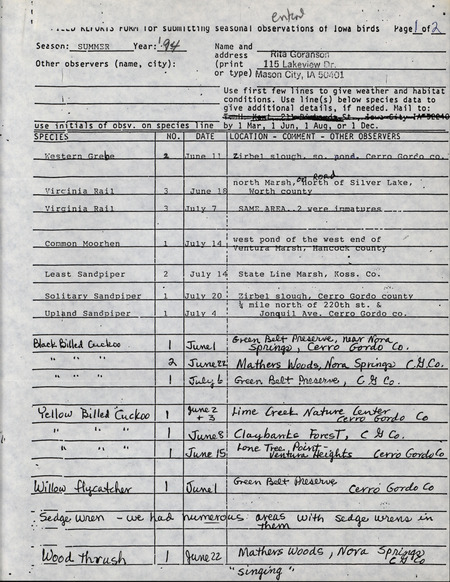 entered
FIELD REPORTS FORM for submitting seasonal observations of Iowa birds Page 1 of 2
Season: SUMMER Year: '94 Name and
address Rita Goranson
Other observers (name, city): (print 115 Lakeview Dr.
or type) Mason City, IA 50401
Use first few lines to give weather and habitat
conditions. Use line(s) below species data to
give additional details, if needed. Mail to:
use initials of obsv. on species line by 1 Mar, 1 Jun, 1 Aug, or 1 Dec.
SPECIES NO. DATE LOCATION - COMMENT - OTHER OBSERVERS
Western Grebe 2 June 11 Zirbel slough, so. pond, Cerro Gordo co.
on road
north Marsh, North of Silver Lake,
Virginia Rail 3 June 18 Worth county
Virginia Rail 3 July 7 SAME AREA..2 were inmatures
Common Moorhen 1 July 14 west pond of the west end of
Ventura Marsh, Hancock county
Least Sandpiper 2 July 14 State Line Marsh, Koss. Co.
Solitary Sandpiper 1 July 20 Zirbel slough, Cerro Gordo county
mile north of 220th st. &
Upland Sandpiper 1 July 4 Jonquil Ave. Cerro Gordo co.
Black Billed Cuckoo 1 June 1 Green Belt Preserve, near Nora
Springs, Cerro Gordo Co.
" " " 2 June 22 Mathers Woods, Nora Springs C G Co.
" " " 1 July 6 Green Belt Preserve, C G Co.
Yellow Billed Cuckoo 1 June 2 + 3 Lime Creek Nature Center
Cerro Gordo Co
" " " 1 June 8 Claybanks Forest, C G Co.
" " " 1 June 15 Lone Tree Point -
Ventura Heights Cerro Gordo Co
Willow flycatcher 1 June 1 Green Belt Preserve
Cerro Gordo Co
Sedge Wren - we had numerous areas with sedge wrens in
them
Wood thrush 1 June 22 Mathers Woods, Nora Springs
C G Co
"singing"